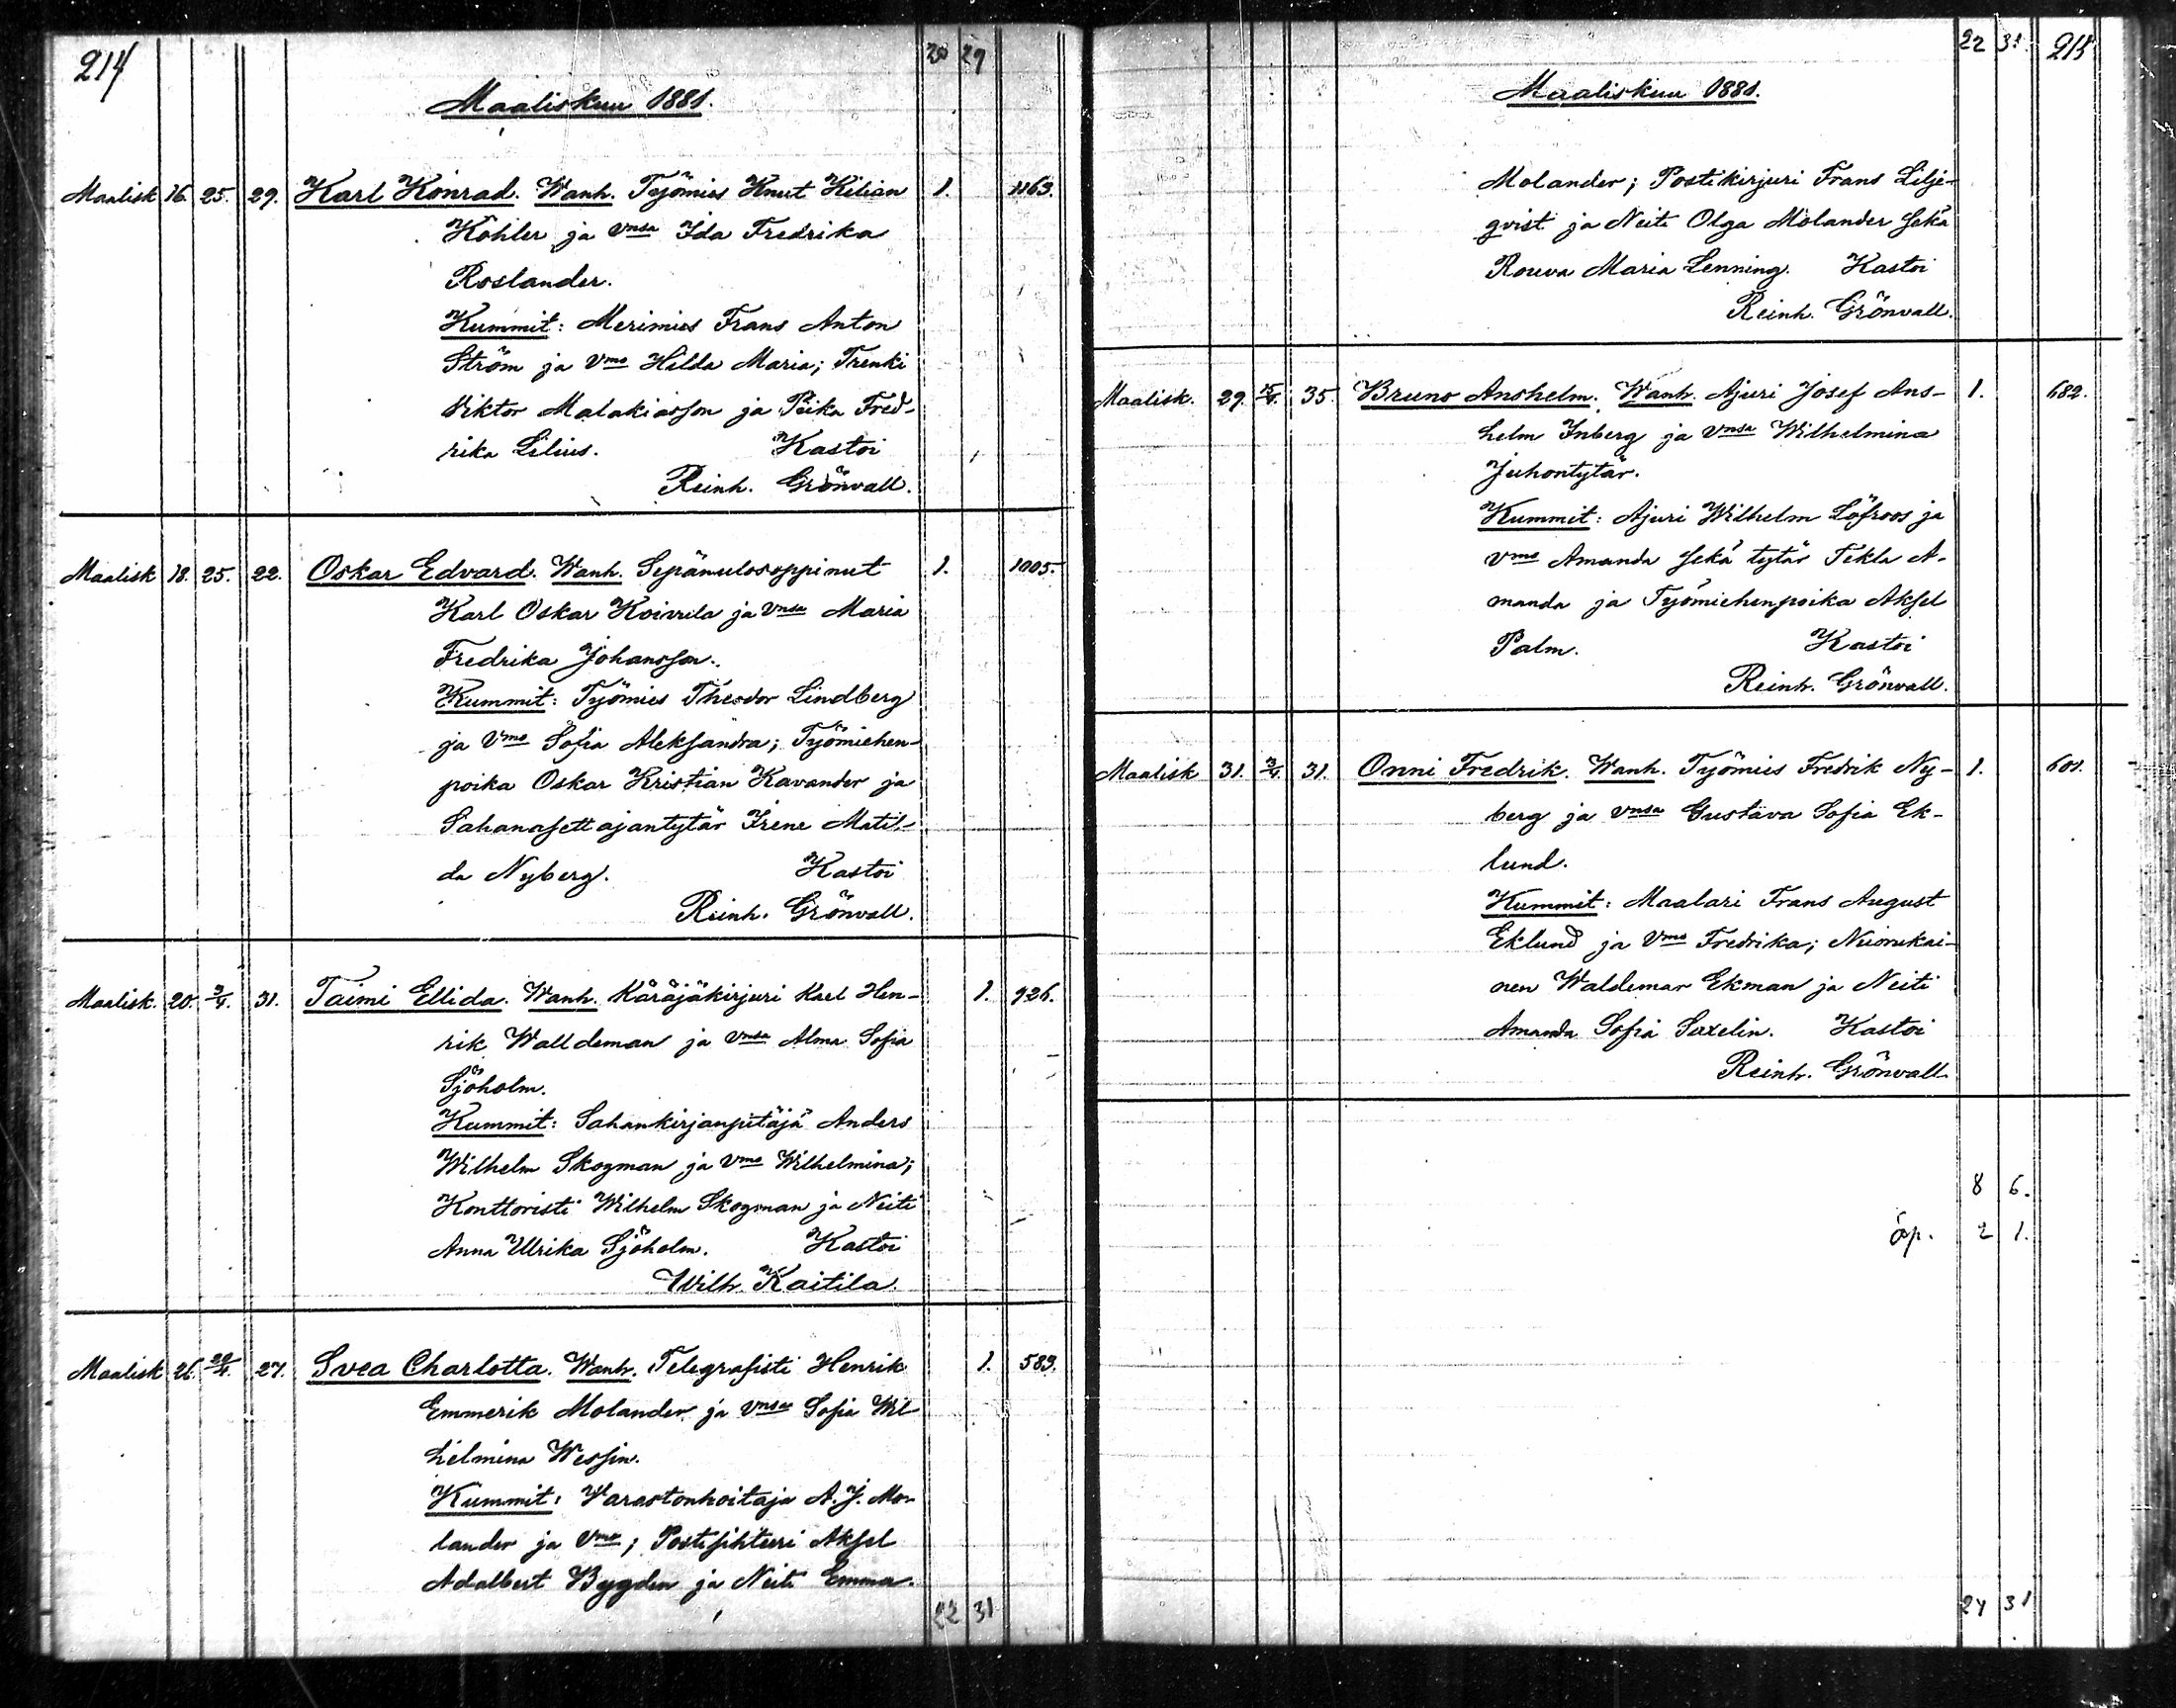 214 20 29
Maaliskuu 1881.
Maalisk 16. 25. 29. Karl Konrad. Wanh. Työmies Knut Kilian 1. 1163.
Köhler ja vnsa Ida Fredrika
Roslander.
Kummit: Merimies Frans Anton
Ström ja Vmo Hilda Maria; Trenki
Viktor Malakiasson ja Piika Fred-
rika Lilius. Kastoi
Reinh. Grönvall.
Maalisk 18. 25. 22. Oskar Edvard. Wanh. Sepänulosoppinut 1. 1005.
Karl Oskar Koivula ja vnsa Maria
Fredrika Johansson.
Kummit: Työmies Theodor Lindberg
ja Vmo Sofia Aleksandra; Työmiehen-
poika Oskar Kristian Kavander ja
Sahanasettajantytär Irene Matil-
da Nyberg. Kastoi
Reinh. Grönvall.
Maalisk. 20. 3/4. 31. Taimi Ellida. Wanh. Käräjäkirjuri Karl Hen- 1. 926.
rik Walldeman ja vnsa Alma Sofia
Sjöholm.
Kummit: Sahankirjanpitäjä Anders
Wilhelm Skogman ja Vmo Wilhelmina;
Konttoristi Wilhelm Skogman ja Neiti
Anna Ulrika Sjöholm. Kastoi
Wilh. Kaitila.
Maalisk 26. 20/4. 27. Svea Charlotta. Wanh. Telegrafisti Henrik 1. 589.
Emmerik Molander ja vnsa Sofia Wil
helmina Wessin.
Kummit: Varastonhoitaja A. J. Mo-
lander ja Vmo; Postisihteeri Aksel
Adalbert Bygden ja Neiti Emma
22 31
22 31. 215
Maaliskuu 1881.
Molander; Postikirjuri Frans Lilje-
qvist ja Neiti Olga Molander sekä
Rouva Maria Lenning. Kastoi
Reinh. Grönvall.
Maalisk. 29. 15/4. 35. Bruno Anshelm. Wanh. Ajuri Josef Ans- 1. 682.
helm Inberg ja vnsa Wilhelmina
Juhontytär.
Kummit: Ajuri Wilhelm Löfroos ja
Vmo Amanda sekä tytär Tekla A-
manda ja Työmiehenpoika Aksel
Palm. Kastoi
Reinh. Grönvall.
Maalisk 31. 3/4. 31. Onni Fredrik. Wanh. Työmies Fredrik Ny- 1. 601.
berg ja vnsa Gustava Sofia Ek-
lund.
Kummit: Maalari Frans August
Eklund ja Vmo Fredrika; Nuorukai-
nen Waldemar Ekman ja Neiti
Amanda Sofia Saxelin. Kastoi
Reinh. Grönvall.
8 6.
äp. 2 1.
24 31